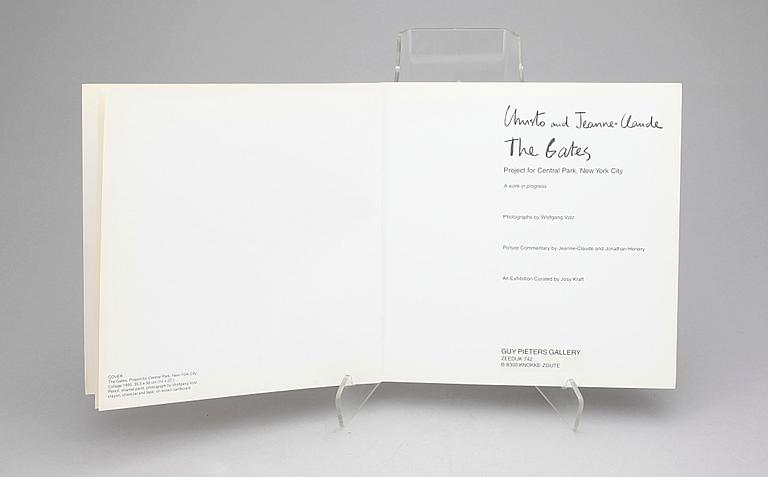 COVER
The Gates, Project for Central Park, New York City
Collage 1990. 35,5 x 56 cm (14 x 22")
Pencil, enamel paint, photograph by Wolfgang Volz,
crayon, charcoal and tape, on brown cardboard
Christo and Jeanne-Claude
The Gates
Project for Central Park, New York City
A work in progress
Photographs by Wolfgang Volz
Picture Commentary by Jeanne-Claude and Jonathan Henery
An Exhibition Curated by Josy Kraft
GUY PIETERS GALLERY
ZEEDIJK 742
B-8300 KNOKKE-ZOUTE